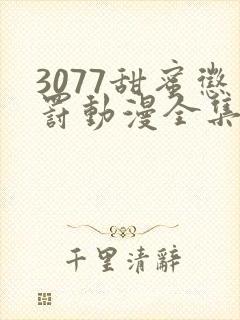 3077甜蜜懲
罰動漫全集
千里清辭